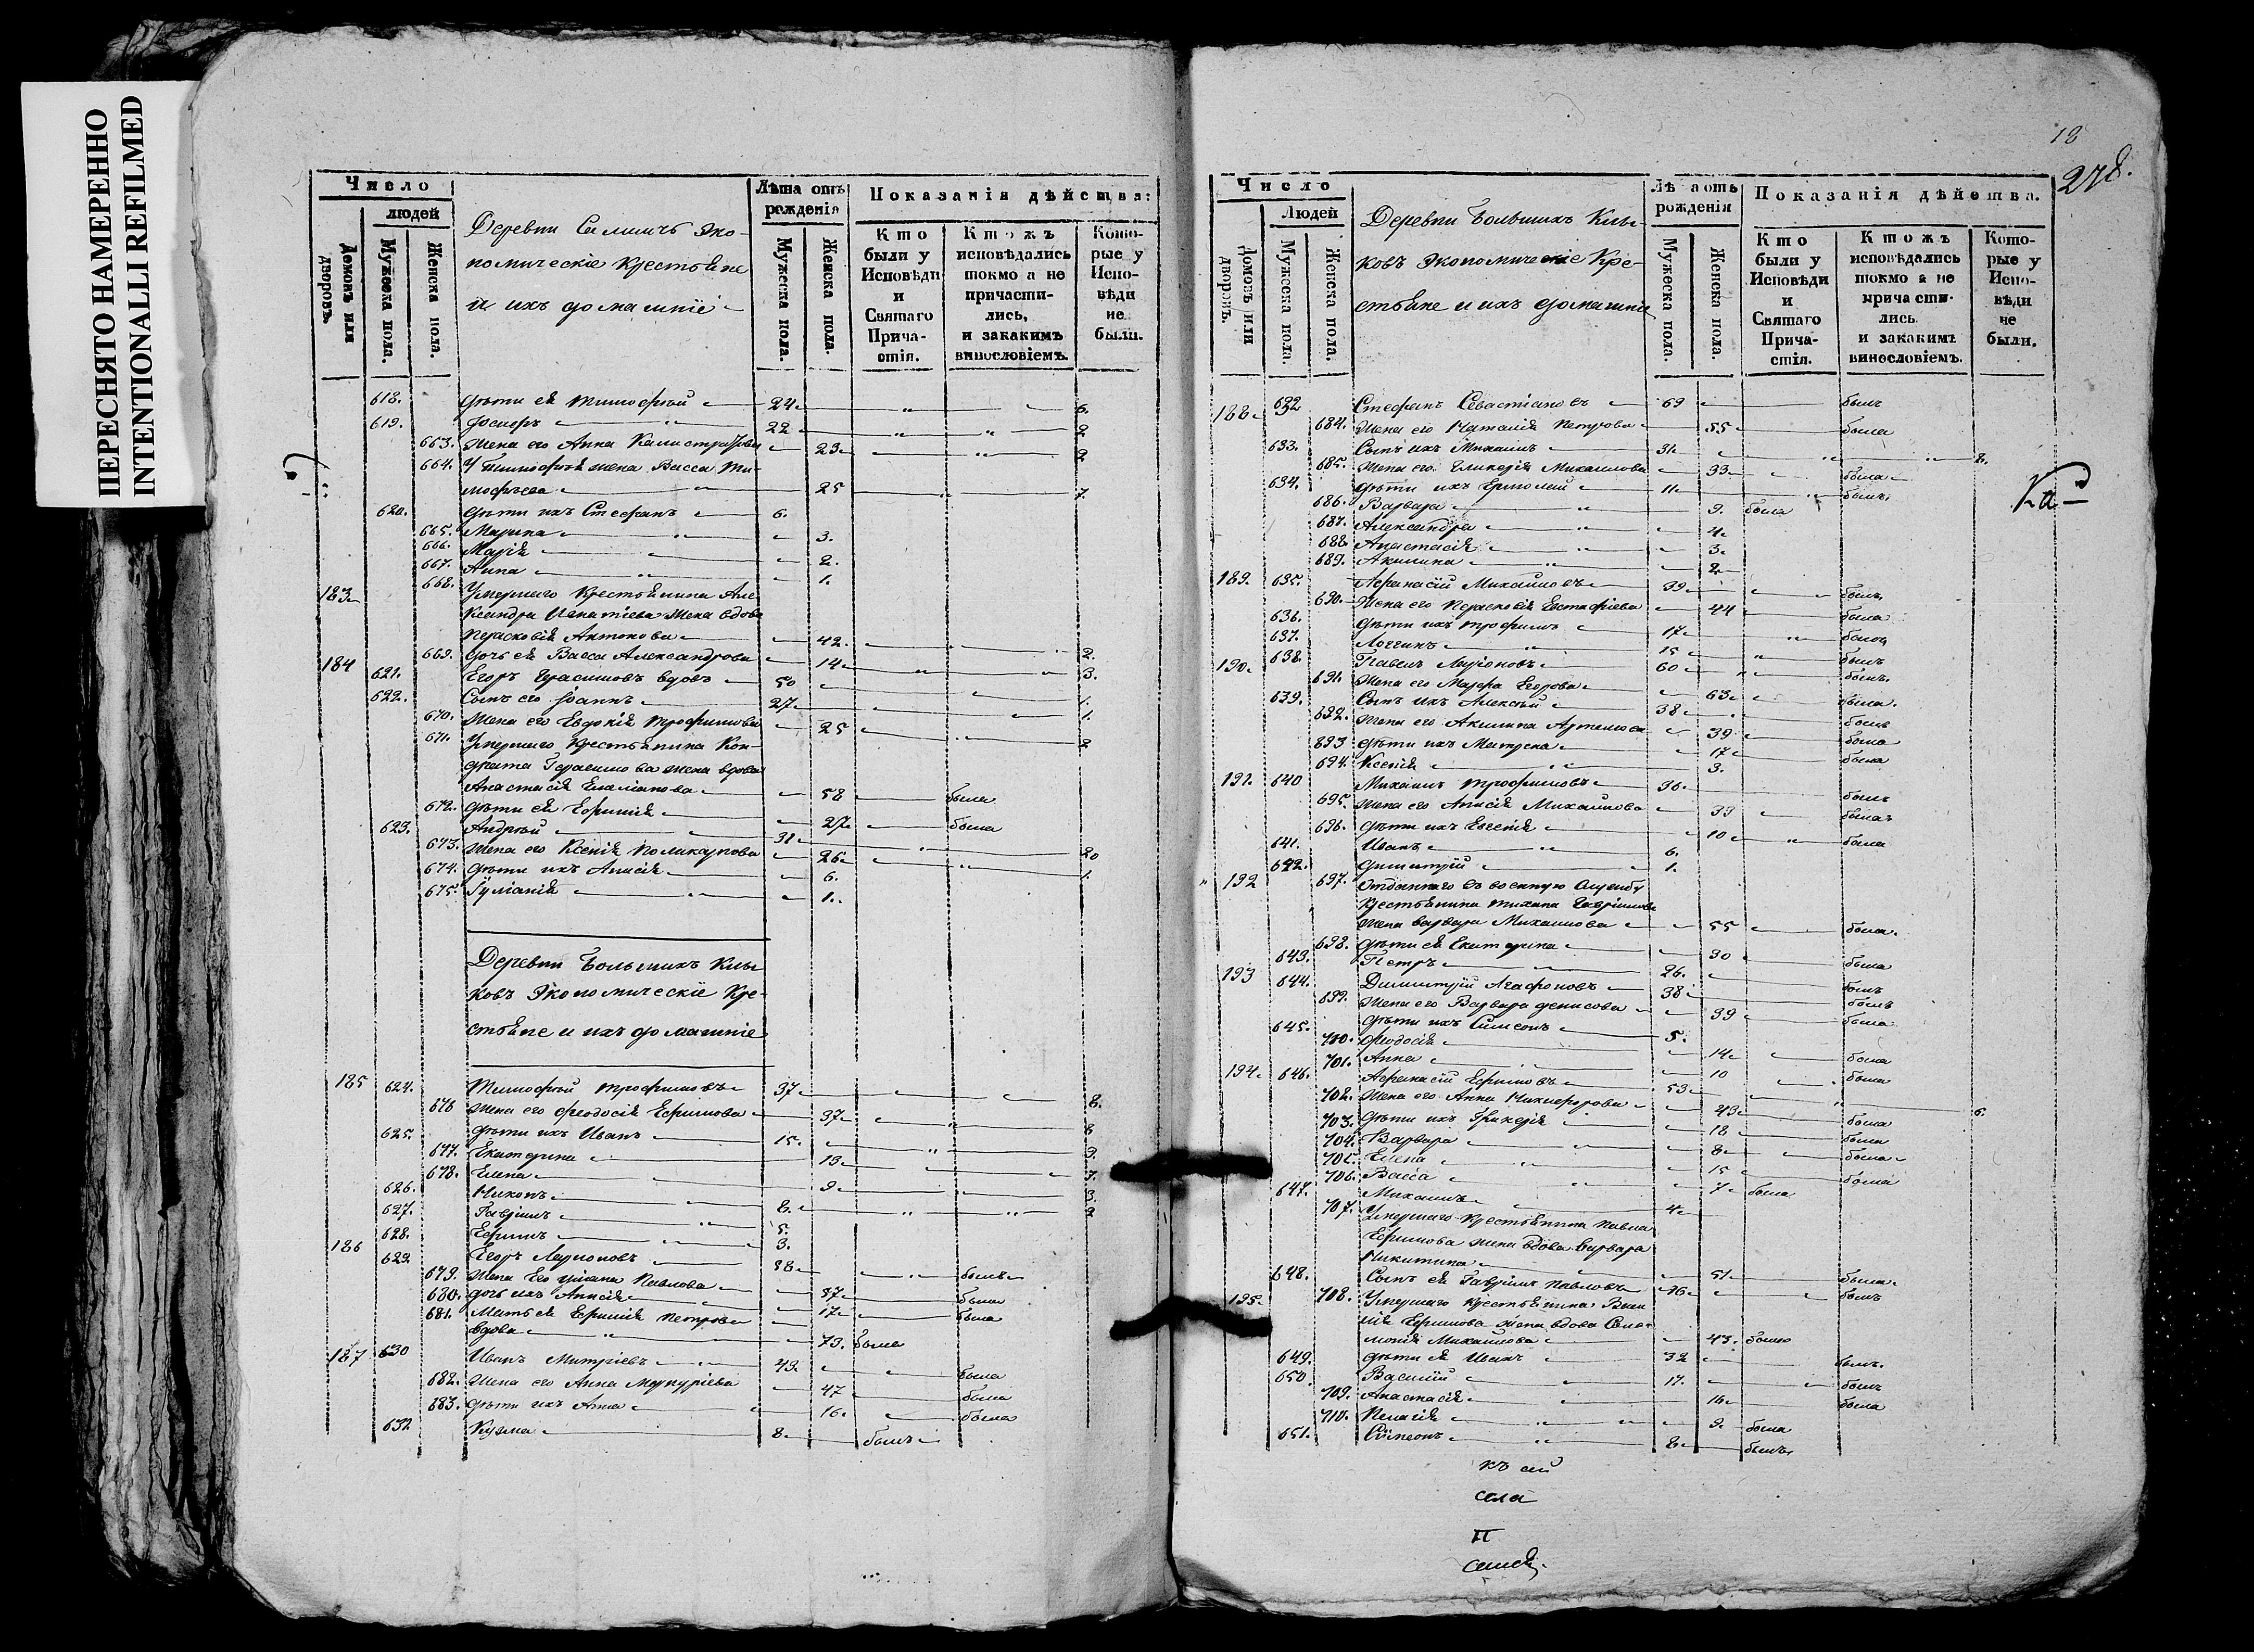 ПЕРЕСНЯТО НАМЕРЕННО
INTENTIONALLI REFILMED
Число
людей
Домовъ или дворовъ.
Мужеска пола.
Женска пола.
Деревни Эко-
номическіе Крестьяне
и ихъ домашніе
Лѣта отъ рожденія
Мужеска пола.
Женска пола.
Показанія дѣйства:
Кто были у Исповѣди и Святаго Причастія.
Кто жъ исповѣдались токмо а не причастились, и закакимъ винословіемъ.
Которые у Исповѣди не были.
618. дѣти ея Тимофѣй 24 6.
619. 22 2
663. жена его Анна Калистратова 23 2
664. У Тимофѣя жена Васса Ти-
мофѣева 25 7.
620. дѣти ихъ Стефанъ 6.
665. Марина 3.
666. Марія 2.
667. Анна 1.
183 668. Умершаго Крестьянина Але
ксандра Игнатіева жена вдова
Парасковія Антонова 42. 2.
669. дочь ея Васса Александрова 14 3.
184 621. Егоръ Герасимовъ вдовъ 50 1.
622. Сынъ его Іоаннъ 27 1.
670. жена его Евдокія Трофимова 25 2
671. Умершаго Крестьянина Кон-
драта Герасимова жена вдова
Анастасія Емеліанова 58 была
672. дѣти ея Ефимія 27 была
623. Андрей 31 20
673. жена его Ксенія Поликарпова 26 1.
674. дѣти ихъ Анисія 6.
675. Іуліанія 1.
Деревни Большихъ Клы-
ковъ Экономическіе Кре-
стьяне и ихъ домашніе
185 624. Тимофѣй Трофимовъ 37 8.
676 жена его Феодосія Ефимова 37 8
625. дѣти ихъ Иванъ 15. 9.
677. Екатерина 13 7.
678. Елена 9 3.
626. Никонъ 8. 2
627. Гавріилъ 5.
628. Ефимъ 3.
186 629 Егоръ Ларионовъ 58 былъ
679. жена Его Уліана Павлова 57 была
680. дочь ихъ Анисія 17 была
681. Мать ея Ефимія Петрова
вдова 73. была
187 630 Иванъ Митріевъ 49. была
682. жена его Анна Меркуріева 47 была
683. дѣти ихъ Анна 16. была
632 Кузма 8. былъ
18
278.
Число
Людей
Домовъ или дворовъ.
Мужеска пола.
Женска пола.
Деревни Большихъ Клы-
ковъ Экономическіе Кре-
стьяне и ихъ домашніе
Лѣта отъ рожденія
Мужеска пола.
Женска пола.
Показанія дѣйства.
Кто были у Исповѣди и Святаго Причастія.
Кто жъ исповѣдались токмо а не причастились. и закакимъ винословіемъ.
Которые у Исповѣди не были.
188 632 Стефанъ Севастіановъ 69 былъ
684. жена его Наталія Петрова 55 была
633. Сынъ ихъ Михаилъ 31. 8.
685. жена его Гликерія Михаилова 33 была
634. дѣти ихъ Ермолай 11. былъ
686. Варвара 9. была
687. Александра 4.
688. Анастасія 3.
689. Акилина 2
189. 635. Афанасій Михайловъ 39 былъ
690. Жена его Параскевія Евстафіева 44 была
636. дѣти ихъ Трофимъ 17
637. Логинъ 15 былъ
190. 638. Павелъ Ларіоновъ 60 былъ.
691. жена его Марфа Егорова 63 была.
639. Сынъ ихъ Алексѣй 38 былъ
692. жена его Акилина Артемова 39 была
693 дѣти ихъ Матрена 17 была
694. Ксенія 3.
191. 640 Михаилъ Трофимовъ 36. былъ
695. жена его Анисія Михайлова 39
696. дѣти ихъ Евгенія 10 была
641. Иванъ 6.
642. Димитрій 1.
192 697. Отданнаго въ военную службу
крестьянина Тихана Гавріилова
жена Варвара Михаилова 55 была.
698. дѣти ея Екатерина 30 была
643. Петръ 26. былъ
193 644. Димитрій Агафоновъ 38 былъ
699. жена его Варвара Денисова 39 была
645. дѣти ихъ Симеонъ 5.
700. Феодосія 14 была
701. Анна 10 была
194. 646. Афанасій Ефимовъ 53 6.
702. жена его Анна Никифорова 43 была
703. дѣти ихъ Гликерія 18 была
704. Варвара 8 была
705. Елена 15 была
706. Васса 7 была
647. Михаилъ 4
707. Умершаго крестьянина Павла
Ефимова жена вдова Варвара
Никитина 51 была.
648. Сынъ ея Гавріилъ Павловъ 16 былъ
195. 708. Умершаго крестьянина
Ефимова жена вдова Соло-
монія Михайлова 43. была
649. дѣти ея Иванъ 32 былъ.
650. Василій 17. былъ
709. Анастасія 16. была
710. Пелагія 9. была
651. Симеонъ 8. былъ
къ сей
села